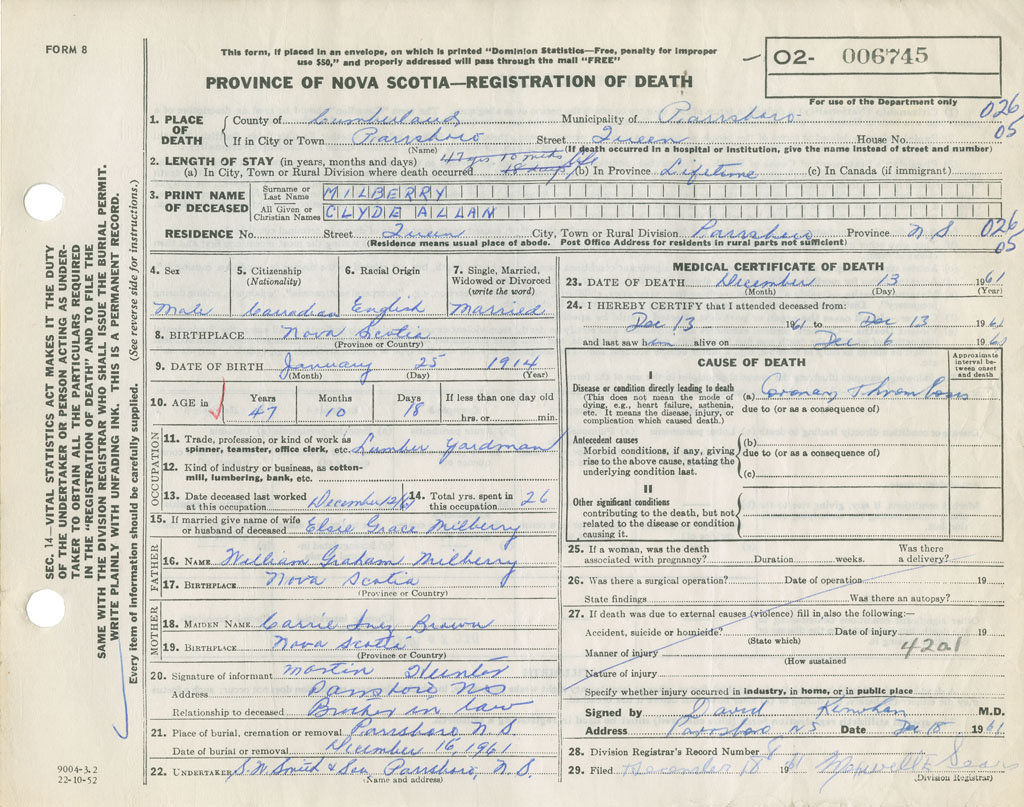 FORM 8
This form, if placed in an envelope, on which is printed "Dominion Statistics—Free, penalty for improper
use $50," and properly addressed will pass through the mail "FREE"
PROVINCE OF NOVA SCOTIA—REGISTRATION OF DEATH
O2- 006745
For use of the Department only
026
05
1. PLACE OF DEATH
County of Cumberland Municipality of Parrsboro
If in City or Town Parrsboro Street Queen House No.
(Name) (If death occurred in a hospital or institution, give the name instead of street and number)
2. LENGTH OF STAY (in years, months and days) 47 yrs 10 mths
(a) In City, Town or Rural Division where death occurred 18 days (b) In Province Lifetime (c) In Canada (if immigrant)
3. PRINT NAME OF DECEASED
Surname or Last Name MILBERRY
All Given or Christian Names CLYDE ALLAN
RESIDENCE No. Street Queen City, Town or Rural Division Parrsboro Province N S
(Residence means usual place of abode. Post Office Address for residents in rural parts not sufficient)
026
05
4. Sex
Male
5. Citizenship
(Nationality)
Canadian
6. Racial Origin
English
7. Single, Married,
Widowed or Divorced
(write the word)
Married
8. BIRTHPLACE Nova Scotia
(Province or Country)
9. DATE OF BIRTH January 25 1914
(Month) (Day) (Year)
10. AGE in Years Months Days If less than one day old
47 10 18 hrs. or min.
OCCUPATION
11. Trade, profession, or kind of work as
spinner, teamster, office clerk, etc. Lumber Yardman
12. Kind of industry or business, as cotton-
mill, lumbering, bank, etc.
13. Date deceased last worked
at this occupation December 12/61
14. Total yrs. spent in
this occupation 26
15. If married give name of wife
or husband of deceased Elsie Grace Milberry
FATHER
16. NAME William Graham Milberry
17. BIRTHPLACE Nova Scotia
(Province or Country)
MOTHER
18. MAIDEN NAME Carrie Inez Brown
19. BIRTHPLACE Nova Scotia
(Province or Country)
20. Signature of informant Martin Hunter
Address Parrsboro N S
Relationship to deceased Brother in law
21. Place of burial, cremation or removal Parrsboro, N S.
Date of burial or removal December 16, 1961
22. UNDERTAKER S. W. Smith & Son Parrsboro, N. S.
MEDICAL CERTIFICATE OF DEATH
23. DATE OF DEATH December 13 1961
(Month) (Day) (Year)
24. I HEREBY CERTIFY that I attended deceased from:
Dec 13 1961 to Dec 13 1961
and last saw him alive on Dec 6 1961
CAUSE OF DEATH
Approximate
interval be-
tween onset
and death
I
Disease or condition directly leading to death
(This does not mean the mode of
dying, e.g., heart failure, asthenia,
etc. It means the disease, injury, or
complication which caused death.)
(a) Coronary Thrombosis
due to (or as a consequence of)
Antecedent causes
Morbid conditions, if any, giving
rise to the above cause, stating the
underlying condition last.
(b)
due to (or as a consequence of)
(c)
II
Other significant conditions
contributing to the death, but not
related to the disease or condition
causing it.
25. If a woman, was the death
associated with pregnancy? Duration weeks. Was there
a delivery?
26. Was there a surgical operation? Date of operation 19
State findings Was there an autopsy?
27. If death was due to external causes (violence) fill in also the following:—
Accident, suicide or homicide? Date of injury 19
(State which)
Manner of injury 4201
(How sustained
Nature of injury
Specify whether injury occurred in industry, in home, or in public place
Signed by David M.D.
Address Parrsboro N S Date Dec 18 1961
28. Division Registrar's Record Number
29. Filed December 18 1961 Maxwell Sears
(Division Registrar)
SEC. 14—VITAL STATISTICS ACT MAKES IT THE DUTY
OF THE UNDERTAKER OR PERSON ACTING AS UNDER-
TAKER TO OBTAIN ALL THE PARTICULARS REQUIRED
IN THE "REGISTRATION OF DEATH" AND TO FILE THE
SAME WITH THE DIVISION REGISTRAR WHO SHALL ISSUE THE BURIAL PERMIT.
WRITE PLAINLY WITH UNFADING INK. THIS IS A PERMANENT RECORD.
Every item of information should be carefully supplied. (See reverse side for instructions.)
9004-3.2
22-10-52